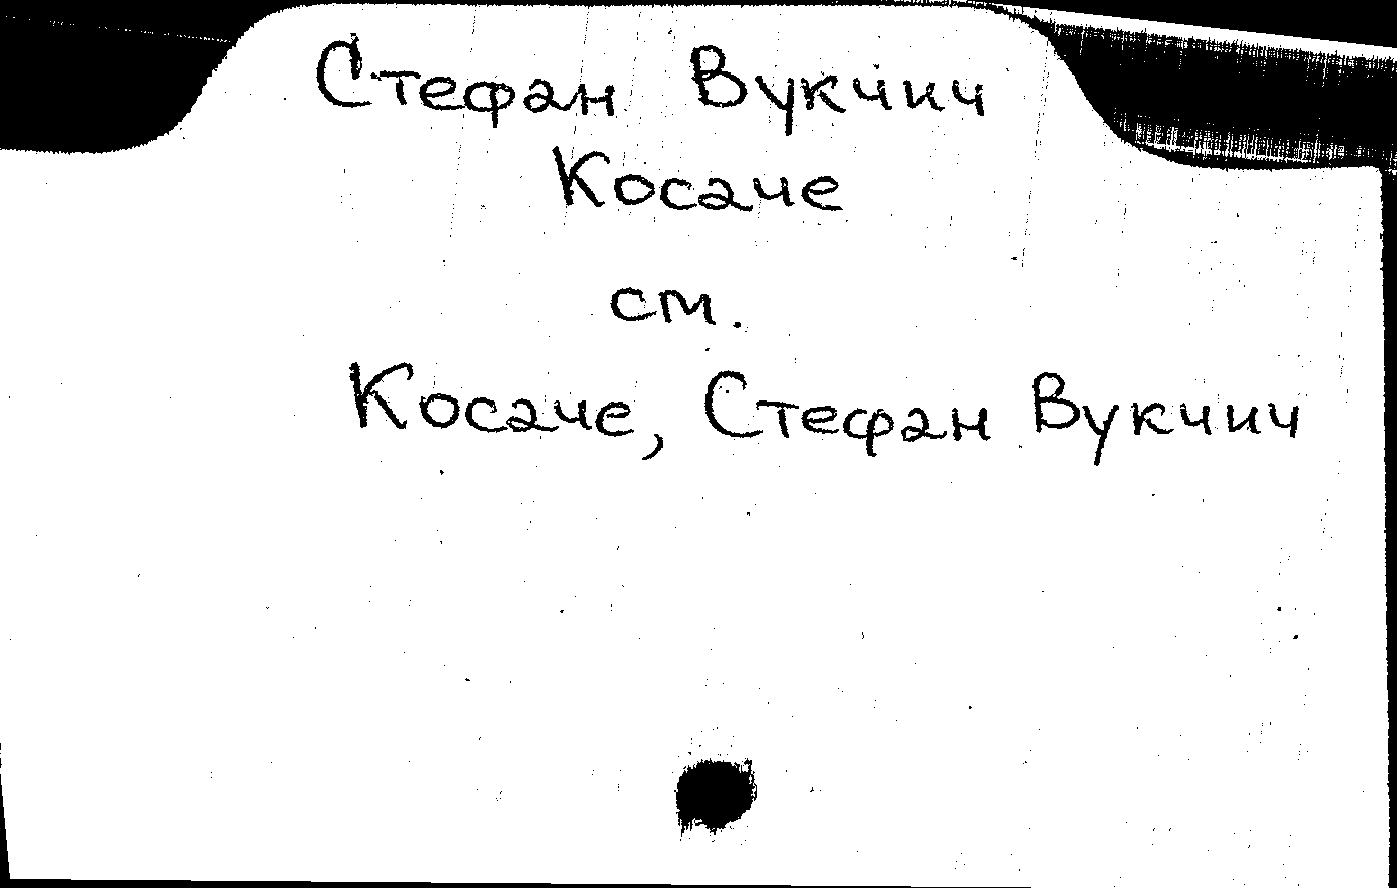 Стефан Вукчич
Косаче
см.
Косаче, Стефан Вукчич